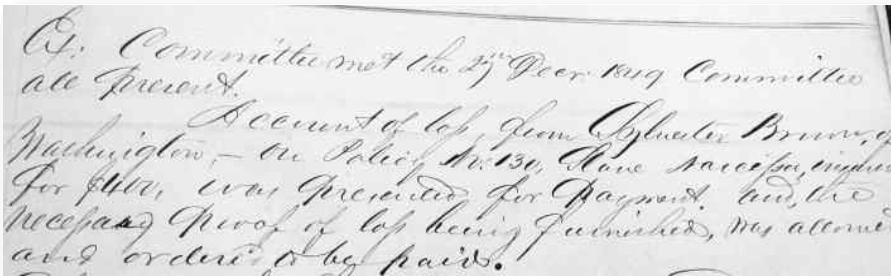 Ex: Committee met the 27th Decr. 1849 Committee
all present.
Account of loss, from Sylvester Brown, of
Washington, – on Policy No: 130, Slave Narcissa, insured
for $400, was presented for Payment. and, the
necessary proof of loss being furnished, was allowed
and ordered to be paid.